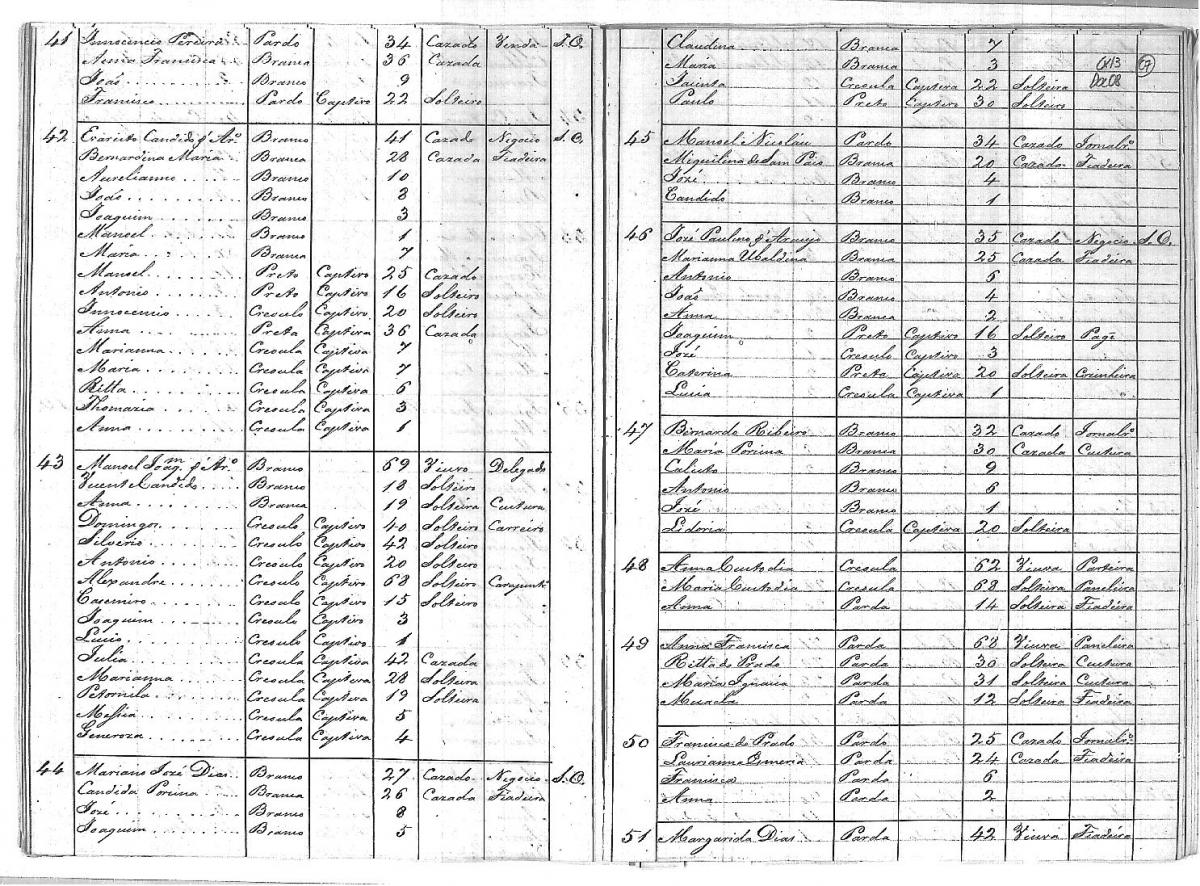 41 Innocencio Pereira Pardo 34 Cazado Venda S.O.
Francisca Branca 36 Cazada
João Branco 9
Francisco Pardo Captivo 22 Solteiro
42 Evaristo Candido d'Arº Branco 41 Cazado Negocio S.O.
Bernardina Maria Branca 28 Cazada Fiadeira
Aurelianno Branco 10
João Branco 8
Joaquim Branco 3
Manoel Branco 1
Maria Branca 7
Manoel Preto Captivo 25 Cazado
Antonio Preto Captivo 16 Solteiro
Innocencio Creoulo Captivo 20 Solteiro
Anna Preta Captiva 36 Cazada
Marianna Creoula Captiva 7
Maria Creoula Captiva 7
Ritta Creoula Captiva 6
Thomazia Creoula Captiva 3
Anna Creoula Captiva 1
43 Manoel Joaqm d'Arº Branco 69 Viuvo Delegado
Vicente Candido Branco 18 Solteiro
Anna Branca 19 Solteira Custura
Domingos Creoulo Captivo 40 Solteiro Carreiro
Silverio Creoulo Captivo 42 Solteiro
Antonio Creoulo Captivo 20 Solteiro
Alexandre Creoulo Captivo 68 Solteiro
Casemiro Creoulo Captivo 15 Solteiro
Joaquim Creoulo Captivo 3
Lucio Creoulo Captivo 1
Julia Creoula Captiva 42 Cazada
Marianna Creoula Captiva 28 Solteira
Petornila Creoula Captiva 19 Solteira
Messia Creoula Captiva 5
Generoza Creoula Captiva 4
44 Mariano José Dias Branco 27 Cazado Negocio S.O.
Candida Porcina Branca 26 Cazada Fiadeira
José Branco 8
Joaquim Branco 5
Claudina Branca 7
Maria Branca 3
Jacinta Creoula Captiva 22 Solteira
Paulo Preto Captivo 30 Solteiro
45 Manoel Nicoláu Pardo 34 Cazado Jornalrº
Miquilina de Sam Paio Branca 20 Cazada Fiadeira
José Branco 4
Candido Branco 1
46 José Paulino d'Araujo Branco 35 Cazado Negocio S.O.
Marianna Ubaldina Branca 25 Cazada Fiadeira
Antonio Branco 6
João Branco 4
Anna Branca 2
Joaquim Preto Captivo 16 Solteiro Page
José Creoulo Captivo 3
Caterina Preta Captiva 20 Solteira Cozinheira
Luzia Creoula Captiva 1
47 Bernardo Ribeiro Branco 32 Cazado Jornalrº
Maria Porcina Branca 30 Cazada Custura
Calisto Branco 9
Antonio Branco 6
José Branco 1
Lidoria Creoula Captiva 20 Solteira
48 Anna Custodia Creoula 62 Viuva Parteira
Maria Custodia Creoula 68 Solteira Paneleira
Anna Parda 14 Solteira Fiadeira
49 Anna Francisca Parda 68 Viuva Paneleira
Ritta do Prado Parda 30 Solteira Custura
Maria Ignacia Parda 31 Solteira Custura
Parda 12 Solteira Fiadeira
50 Francisco do Prado Pardo 25 Cazado Jornalrº
Laurianna Esmeria Parda 24 Cazada Fiadeira
Francisca Parda 6
Anna Parda 2
51 Margarida Dias Parda 42 Viuva Fiadeira